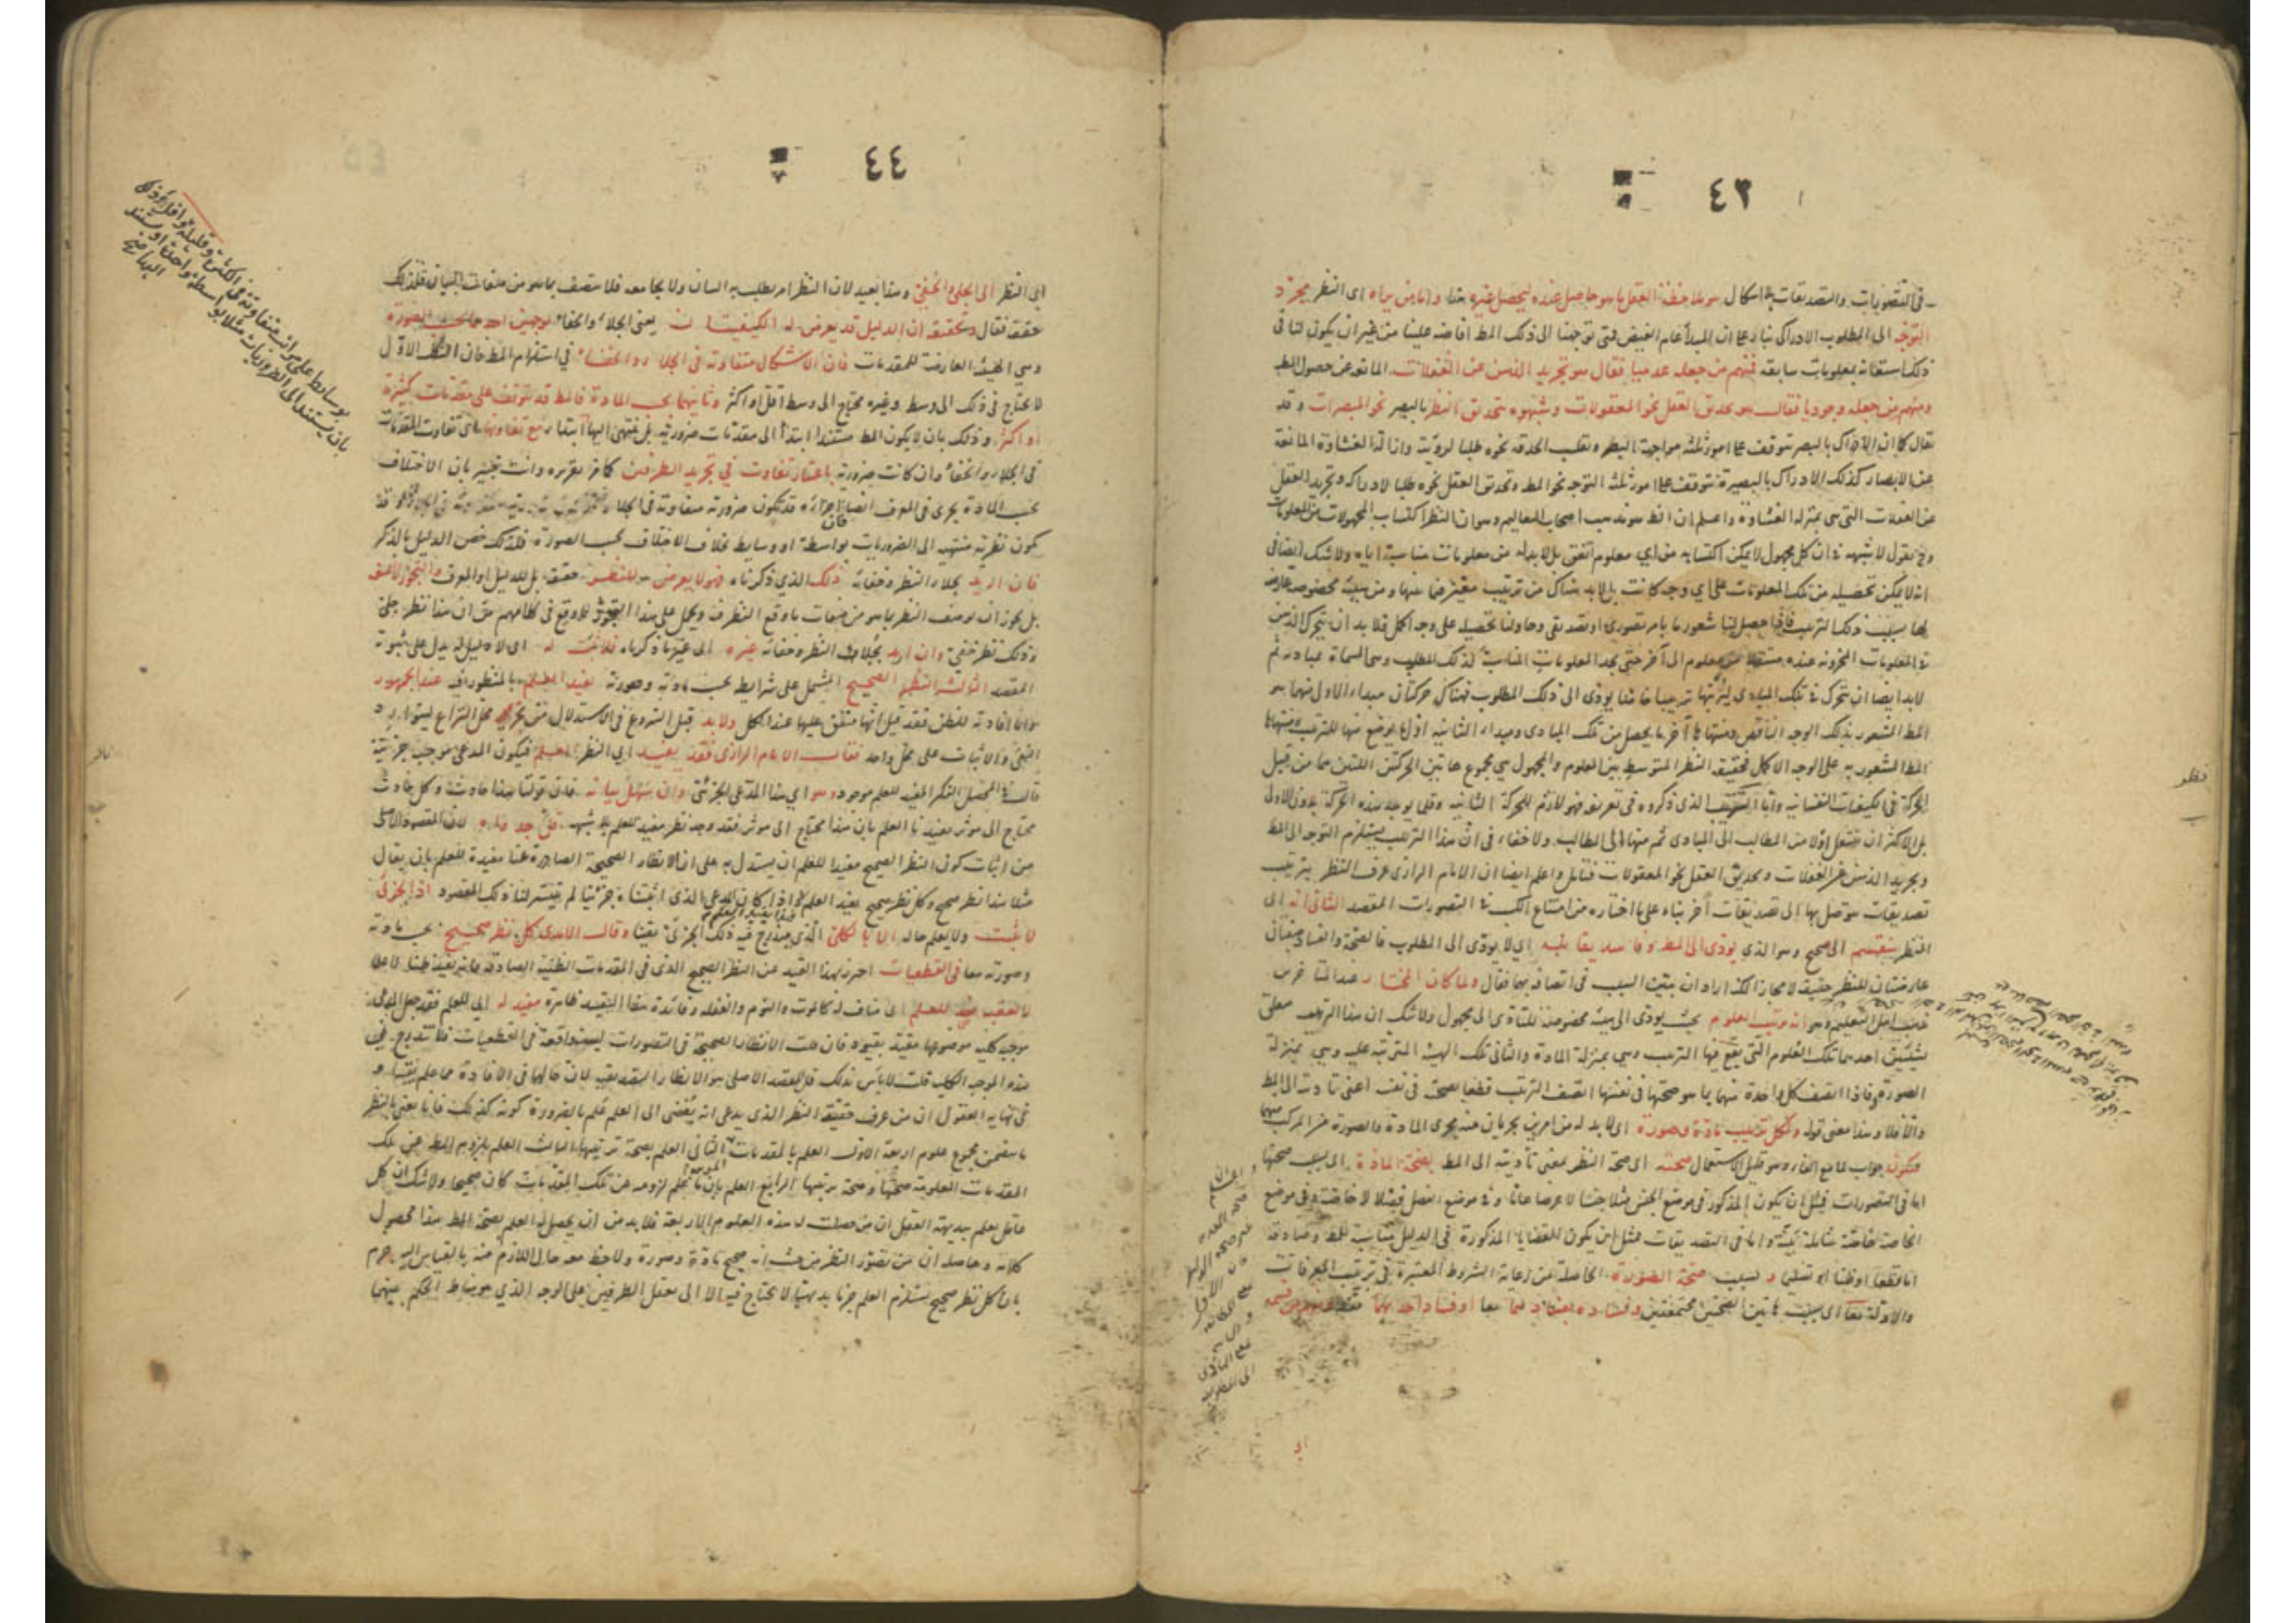 ٤٣
في التصورات والتصديقات بلا اشكال هو ملاحظة العقل ما هو حاصل عنده لتحصيل غيره هذا واما من يراه اى النظر مجرد
التوجه الى المطلوب الادراكى بناء على ان المبدأ عام الفيض فمتى توجهنا الى ذلك المط افاضه علينا من غير ان يكون لنا فى
ذلك استعانة بمعلومات سابقه فمنهم من جعله عدميا فقال هو تجريد الذهن عن الغفلات المانعة عن حصول المط
ومنهم من جعله وجوديا فقال هو تحديق العقل نحو المعقولات وشبهوه بتحديق النظر بالبصر نحو المبصرات وقد
يقال كما ان الادراك بالبصر يتوقف على امور ثلثه مواجهة البصر وتقليب الحدقه نحوه طلبا لرؤيته وازالة الغشاوة المانعة
عن الابصار كذلك الادراك بالبصيرة يتوقف على امور ثلثه التوجه نحو المط وتحديق العقل نحوه طلبا لادراكه وتجريد العقل
عن الغفلات التى هى بمنزلة الغشاوة واعلم ان الظ هو مذهب اصحاب التعاليم وهو ان النظر اكتساب المجهولات من المعلومات
وح نقول لا شبهه فى ان كل مجهول لا يمكن اكتسابه من اى معلوم اتفق بل لابد له من معلومات مناسبة اياه ولا شك ايضا فى
انه لا يمكن تحصيله من تلك المعلومات على اى وجه كانت بل لابد هناك من ترتيب معين فيما بينها ومن هيئة مخصوصه عارضة
لها بسبب ذلك الترتيب فاذا حصل لنا شعور ما بامر تصورى او تصديقى وحاولنا تحصيله على وجه اكمل فلابد ان يتحرك الذهن
فى المعلومات المخزونه عنده منتقلا من معلوم الى آخر حتى يجد المعلومات المناسبة لذلك المطلوب وهى المسماة بمباديه ثم
لابد ايضا ان يتحرك فى تلك المبادى ليرتبها ترتيبا خاصا يودى الى ذلك المطلوب فهناك حركتان مبدأ الاولى منهما هو
المط المشعور به بذلك الوجه الناقص ومنتهاها آخر ما يحصل من تلك المبادى ومبدأ الثانيه اول ما يوضع منها للترتيب ومنتهاها
المط المشعور به على الوجه الاكمل فحقيقة النظر المتوسط بين المعلوم والمجهول هى مجموع هاتين الحركتين اللتين هما من قبيل
الحركة فى الكيفيات النفسانيه واما الترتيب الذى ذكروه فى تعريفه فهو لازم للحركة الثانيه وقلما يوجد هذه الحركة بدون الاولى
بل الاكثر ان ينتقل اولا من المطالب الى المبادى ثم منها الى المطالب ولا خفاء فى ان هذا الترتيب يستلزم التوجه الى المط
وتجريد الذهن عن الغفلات وتحديق العقل نحو المعقولات فتامل واعلم ايضا ان الامام الرازى عرف النظر بترتيب
تصديقات يتوصل بها الى تصديقات آخر بناء على ما اختاره من امتناع الكسب فى التصورات المقصد الثانى انه اى
النظر ينقسم الى صحيح وهو الذى يودى الى المط وفاسد يقابله اى لا يودى الى المطلوب فالصحة والفساد صفتان
عارضتان للنظر حقيقة لا مجازا لكنه اراد ان يبين السبب فى اتصافه بهما فقال ولما كان المختار عند المتاخرين
مذهب اهل التعليم وهو انه ترتيب العلوم بحيث يودى الى هيئة مخصوصة للتأدى الى مجهول ولا شك ان هذا الترتيب يتعلق
بشيئين احدهما تلك العلوم التى يقع فيها الترتيب وهى بمنزلة المادة والثانى تلك الهيئة المترتبه عليه وهى بمنزلة
الصورة فاذا اتصف كل واحدة منهما بما هو صحتها فى نفسها اتصف الترتيب قطعا بصحته فى نفسه اعنى تأديته الى المط
والا فلا وهذا معنى قوله ولكل ترتيب مادة وصورة اى لابد له من امرين يجريان منه مجرى المادة والصورة من المركب منهما
فيكون جواب لما مع الفاء وهو قليل الاستعمال صحته اى صحة النظر بمعنى تأديته الى المط بصحة المادة اى بسبب صحتها
اما فى التصورات فمثل ان يكون المذكور فى موضع الجنس مثلا جنسا لا عرضا عاما وفى موضع الفصل فصلا لا خاصة وفى موضع
الخاصة خاصة شاملة بينة واما فى التصديقات فمثل ان يكون القضايا المذكورة فى الدليل مناسبة للمط وصادقة
اما قطعا او ظنا او تسليما وبسبب صحة الصورة الحاصلة من رعاية الشروط المعتبرة فى ترتيب المعرفات
والادلة معا اى بسبب هاتين الصحتين مجتمعتين وفساده بفسادهما معا او فساد احديهما فقط ومنهم من قسمه
نظر
٤٤
اى النظر الى الجلى والخفى وهذا بعيد لان النظر امر يطلب به البيان ولا يجامعه فلا يتصف بما هو من صفات البيان فلذلك
حققه فقال وتحقيقه ان الدليل قد يعرض له الكيفيتان يعنى الجلاء والخفاء لوجهين احدهما بحسب الصورة
وهى الهيئة العارضة للمقدمات فان الاشكال متفاوتة فى الجلاء والخفاء فى استلزام المط فان الشكل الاول
لا يحتاج فى ذلك الى وسط وغيره يحتاج الى وسط اقل او اكثر وثانيهما بحسب المادة فالمط قد يتوقف على مقدمات كثيرة
او اكثر وذلك بان لا يكون المط مستندا ابتداء الى مقدمات ضرورية بل ينتهى اليها ابتداء مع تفاوتها اى تفاوت المقدمات
فى الجلاء والخفاء وان كانت ضرورية باعتبار تفاوت فى تجريد الطرفين كما مر تقريره وانت تخبير بان الاختلاف
بحسب المادة يجرى فى المعرف ايضا فان اجزاءه قد تكون ضرورية متفاوتة فى الجلاء
يكون نظرية منتهيه الى الضروريات بواسطة او وسايط بخلاف الاختلاف بحسب الصورة فلذلك خص الدليل بالذكر
فان اريد بجلاء النظر وخفائه ذلك الذى ذكرناه فهو لا يعرض للنظر حقيقة بل للدليل او المعرف والتجوز لا يمنعه
بل يجوز ان يوصف النظر بما هو من صفات ما وقع النظر فيه ويحمل على هذا التجوز ما وقع فى كلامهم من ان هذا نظر جلى
وذلك نظر خفى وان اريد بجلاء النظر وخفائه غيره اى غير ما ذكرناه فلا ثبت له اى لا دليل يدل على ثبوته
المقصد الثالث النظر الصحيح المشتمل على شرايط بحسب مادته وصورته يفيد العلم بالمنظور فيه عند الجمهور
واما افادته للظن فقد قيل انها متفق عليها عند الكل ولابد قبل الشروع فى الاستدلال من تحرير محل النزاع ليتوارد
النفى والاثبات على محل واحد فقال الامام الرازى فقد يفيد اى النظر العلم فيكون المدعى موجبة جزئية
قال فى المحصل الفكر المفيد للعلم موجود وهو اى هذا المدعى الجزئى وان سهل بيانه فان قولنا هذا حادث وكل حادث
محتاج الى موثر يفيدنا العلم بان هذا محتاج الى موثر فقد وجد نظر مفيد للعلم بلا شبهه قل جدواه لان المقصود الاصلى
من اثبات كون النظر الصحيح مفيدا للعلم ان يستدل به على ان الانظار الصحيحة الصادرة عنا مفيدة للعلم بان يقال
مثلا هذا نظر صحيح وكل نظر صحيح يفيد العلم فهذا يفيد العلم واذا كان المدعى الذى اثبتناه جزئيا لم يتيسر لنا ذلك المقصود اذ الجزئى
لا يثبت ولا يعلم حاله الا بالكلى الذى يندرج فيه ذلك الجزئى يقينا وقال الامدى كل نظر صحيح بحسب مادته
وصورته معا فى القطعيات احترز بهذا القيد عن النظر الصحيح الذى فى المقدمات الظنية الصادقة فانه يفيد ظنا لا علما
لا يعقبه ضد للعلم اى مناف له كالموت والنوم والغفله وفائدة هذا التقييد ظاهرة مفيد له اى للعلم فقد جعل المدعى
موجبة كلية موضوعها مقيد بقيود فان قلت الانظار الصحيحة فى التصورات ليست واقعة فى القطعيات فلا تندرج فى
هذه الموجبة الكلية قلت لا بأس بذلك فان المقصد الاصلى هو الانظار التصديقية لان حالها فى الافادة مما علم يقينا و
فى نهاية العقول ان من عرف حقيقة النظر الذى يدعى انه يفضى الى العلم علم بالضرورة كونه كذلك فانا نعنى بالنظر
ما يتضمن مجموع علوم اربعة الاول العلم بالمقدمات الثانى العلم بصحة ترتيبها الثالث العلم بلزوم المط عن تلك
المقدمات المعلومة صحتها وصحة ترتيبها الرابع العلم بان ما علم لزومه عن تلك المقدمات كان صحيحا ولا شك ان كل
عاقل يعلم ببديهة العقل ان من حصلت له هذه العلوم الاربعة فلابد من ان يحصل له العلم بصحة المط هذا محصول
كلامه وحاصله ان من تصور النظر من حيث انه صحيح مادة وصورة ولاحظ معه حال اللازم منه بالقياس اليه جزم
بان كل نظر صحيح يستلزم العلم جزما بديهيا لا يحتاج فيه الا الى تعقل الطرفين على الوجه الذى هو مناط الحكم بينهما
بوسايط على مراتب متفاوتة فى الكثرة وقليلة او اقل وذلك
بان يستند الى الضروريات مثلا بواسطة واحدة او يستند
اليها